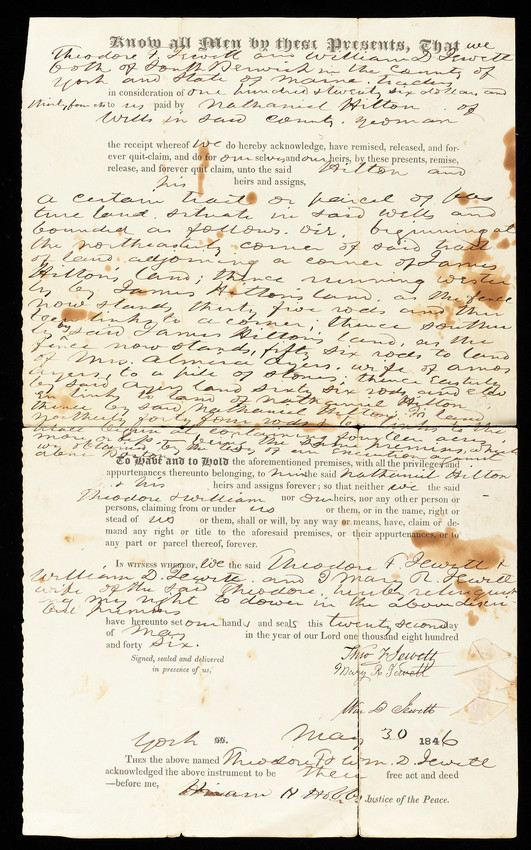 Know all Men by these Presents, That we
Theodore F Jewett and William D Jewett
both of South Berwick in the County of
York and State of Maine traders
in consideration of one hundred & twenty six dollars, and
thirty four cts to us paid by Nathaniel Hilton of
Wells in said county. Yeoman
the receipt whereof we do hereby acknowledge, have remised, released, and for-
ever quit-claim, and do for our selves and our heirs, by these presents, remise,
release, and forever quit claim, unto the said Hilton and
his heirs and assigns,
a certain tract or parcel of pas
ture land. situate in said Wells and
bounded as follows. viz, beginning at
the northeasterly corner of said tract
of land adjoining a corner of James
Hilton's land; thence running wester
ly by James Hilton's land as the fence
now stands thirty five rods and three
links to a corner; thence souther
ly by said James Hilton's land, as the
fence now stands, fifty six rods to land
of Mrs. Almira Ayers, wife of Amos
Ayers, to a pile of stones; thence easterly
by said Ayers land sixty six rods and
links to land of Nathaniel Hilton
thence by said Nathaniel Hilton's land
northerly forty four rods to the
begun at containing fourteen acres
more or less, being the same premises which
To Have and to Hold the aforementioned premises, with all the privileges and
appurtenances thereunto belonging, to him the said Nathaniel Hilton
& his heirs and assigns forever; so that neither we the said
Theodore & William nor our heirs, nor any other person or
persons, claiming from or under us or them, or in the name, right or
stead of us or them, shall or will, by any way or means, have, claim or de-
mand any right or title to the aforesaid premises, or their appurtenances, or to
any part or parcel thereof, forever.
In witness whereof, We the said Theodore F Jewett &
William D. Jewett and I Mary R. Jewett
wife of the said Theodore hereby relinquish
ing my right to dower in the above descri
bed premises
have hereunto set our hands and seals this twenty second day
of May in the year of our Lord one thousand eight hundred
and forty six.
Signed, sealed and delivered
in presence of us,
Theo F Jewett
Mary R Jewett
Wm D Jewett
York ss. May 30 1846
Then the above named Theodore F & Wm. D. Jewett
acknowledged the above instrument to be their free act and deed
—before me,
Hiram H Hobbs Justice of the Peace.